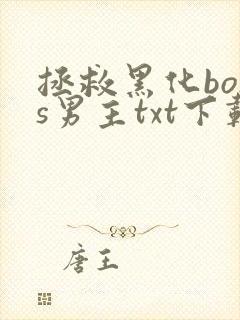 拯救黑化bos
s男主txt下载
唐王